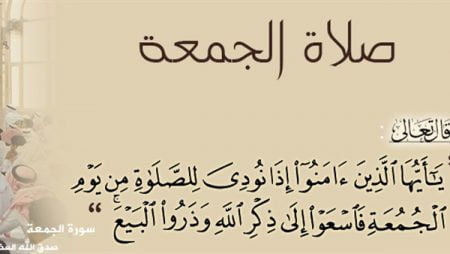 صلاة الجمعة
قال تعالى :
يَٰٓأَيُّهَا ٱلَّذِينَ ءَامَنُوٓا۟ إِذَا نُودِىَ لِلصَّلَوٰةِ مِن يَوْمِ
ٱلْجُمُعَةِ فَٱسْعَوْا۟ إِلَىٰ ذِكْرِ ٱللَّهِ وَذَرُوا۟ ٱلْبَيْعَ ۚ "
سورة الجمعة
صدق الله